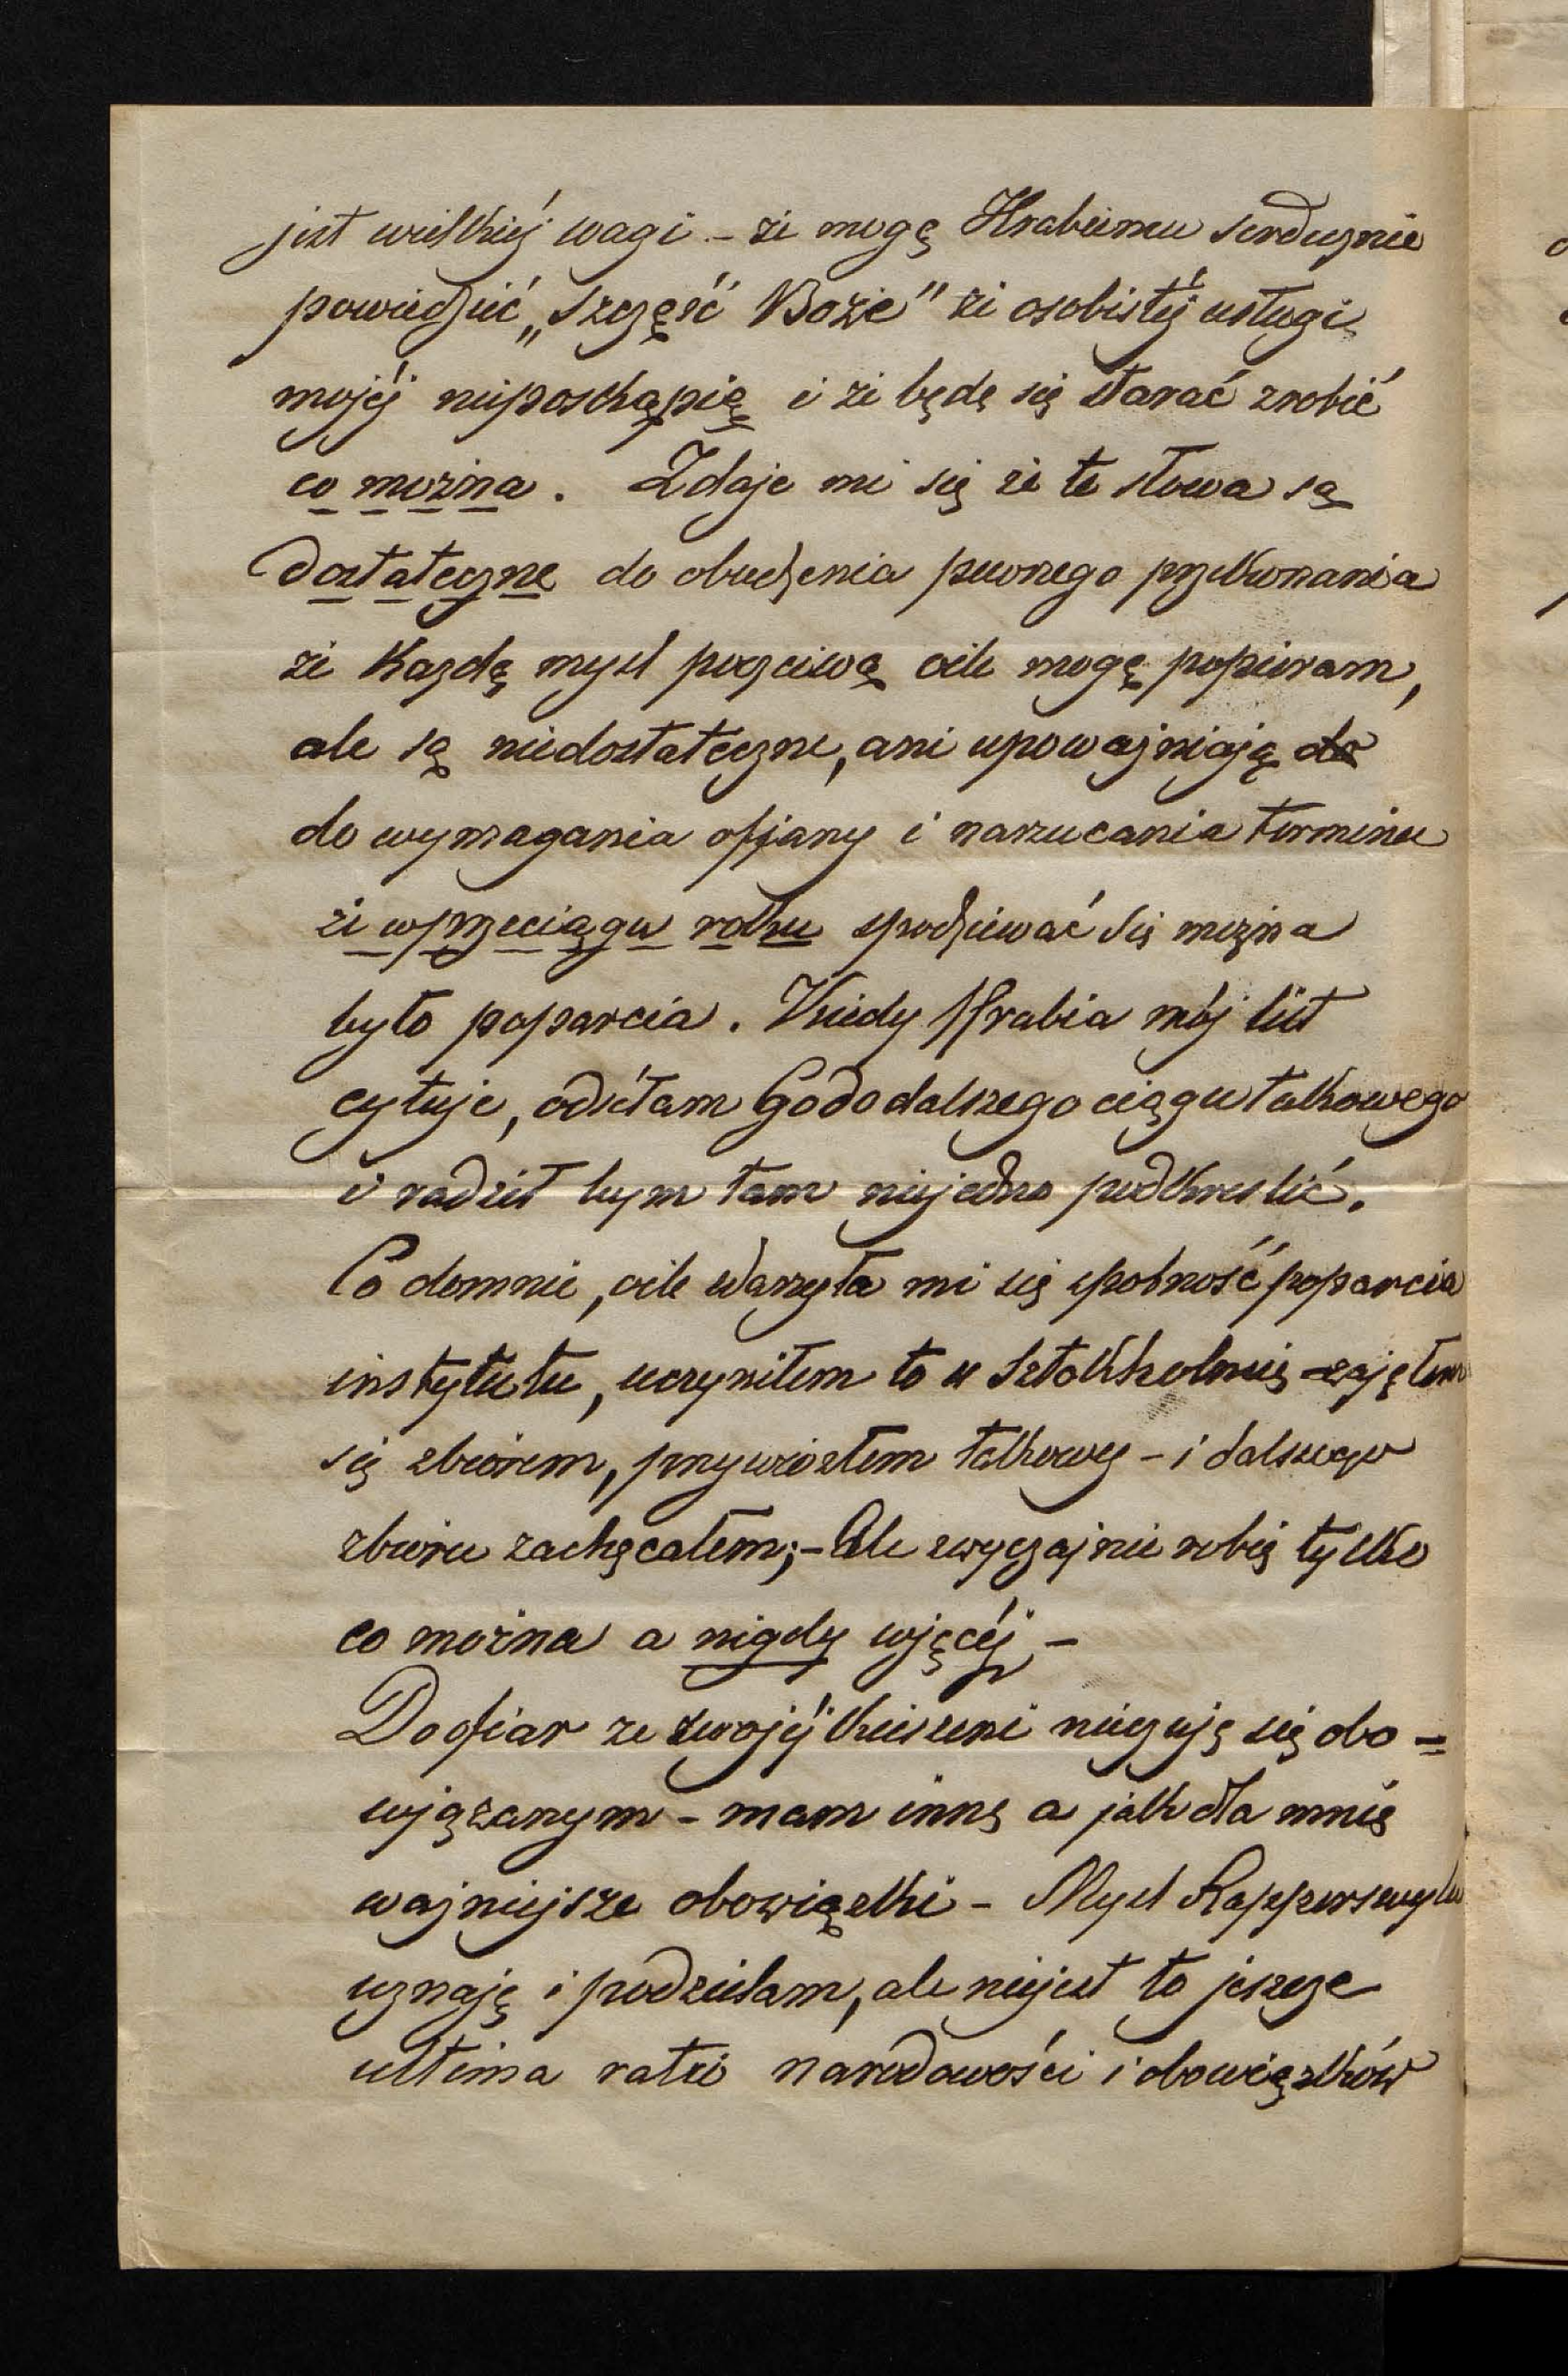 jest wielkiéj wagi – że mogę Hrabiemu serdecznie
powiedzieć „Szczęść Boże" że osobistéj usługi
mojéj nieposkąpię i że będę się starać zrobić
co możną. Zdaje mi się że te słowa są
dostateczne do obudzenia pewnego przekonania
że każdę myśl poczciwą oile mogę popieram,
ale są niedostateczne, ani upoważniają do
do wymagania ofjary i narzucania terminu
że wprzeciągu roku spodziewać się można
było poparcia. Kiedy Hrabia mój list
cytuje, odsełam Go do dalszego ciągu takowego
i radził bym tam niejedno podkreslić.
Co domnie, oile zdarzyła mi się sposność poparcia
instytutu, uczyniłem to w Sztokholmie zająłem
się zbiorem, przywiozłem takowy – i dalszego
zbioru zachęcałem; – Ale zwyczajnie robię tylko
co można a nigdy więcéj –
Do ofiar ze swojéj kieszeni nieczuję się obo=
wjązanym – mam inne a jak dla mnie
ważniejsze obowiązki – Mysl Rapperswylu
uznaję i podzielam, ale niejest to jeszcze
ultima ratio narodowości i obowiązków